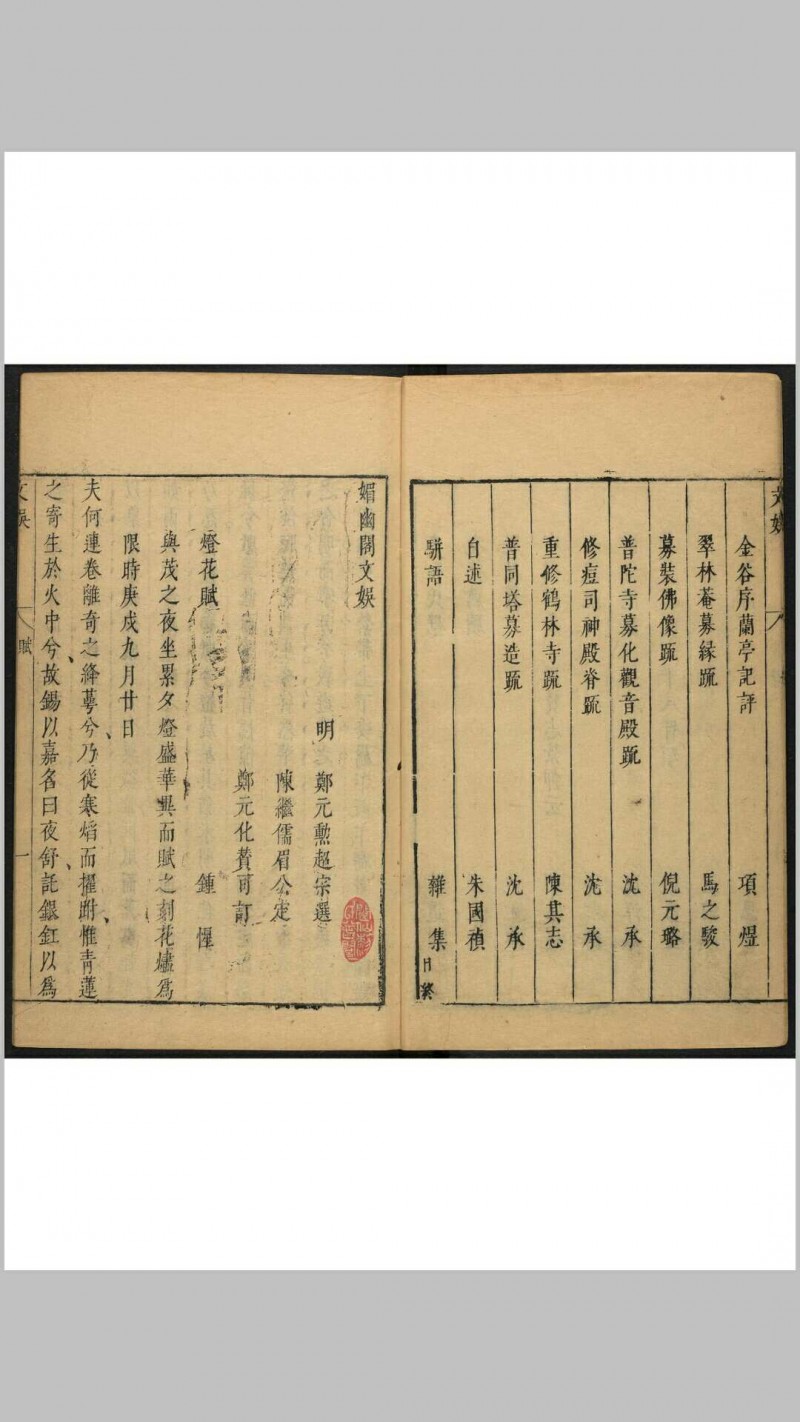 文娛
金谷序蘭亭記評 項煜
翠林菴募緣䟽 馬之駿
募裝佛像䟽 倪元璐
普陀寺募化觀音殿䟽 沈承
修痘司神殿脊䟽 沈承
重修鶴林寺䟽 陳其志
普同塔募造䟽 沈承
自述 朱國禎
駢語 雜集 目終
媚幽閣文娛
明 鄭元勲超宗選
陳繼儒眉公定
鄭元化贊可訂
燈花賦 鍾惺
與茂之夜坐累夕燈盛華異而賦之刻花燼為
限時庚戌九月廿日
夫何連卷離奇之絳萼兮、乃從寒熖而擢跗、惟青蓮
之寄生於火中兮、故錫以嘉名曰夜舒、託銀釭以為
文娛 賦 一